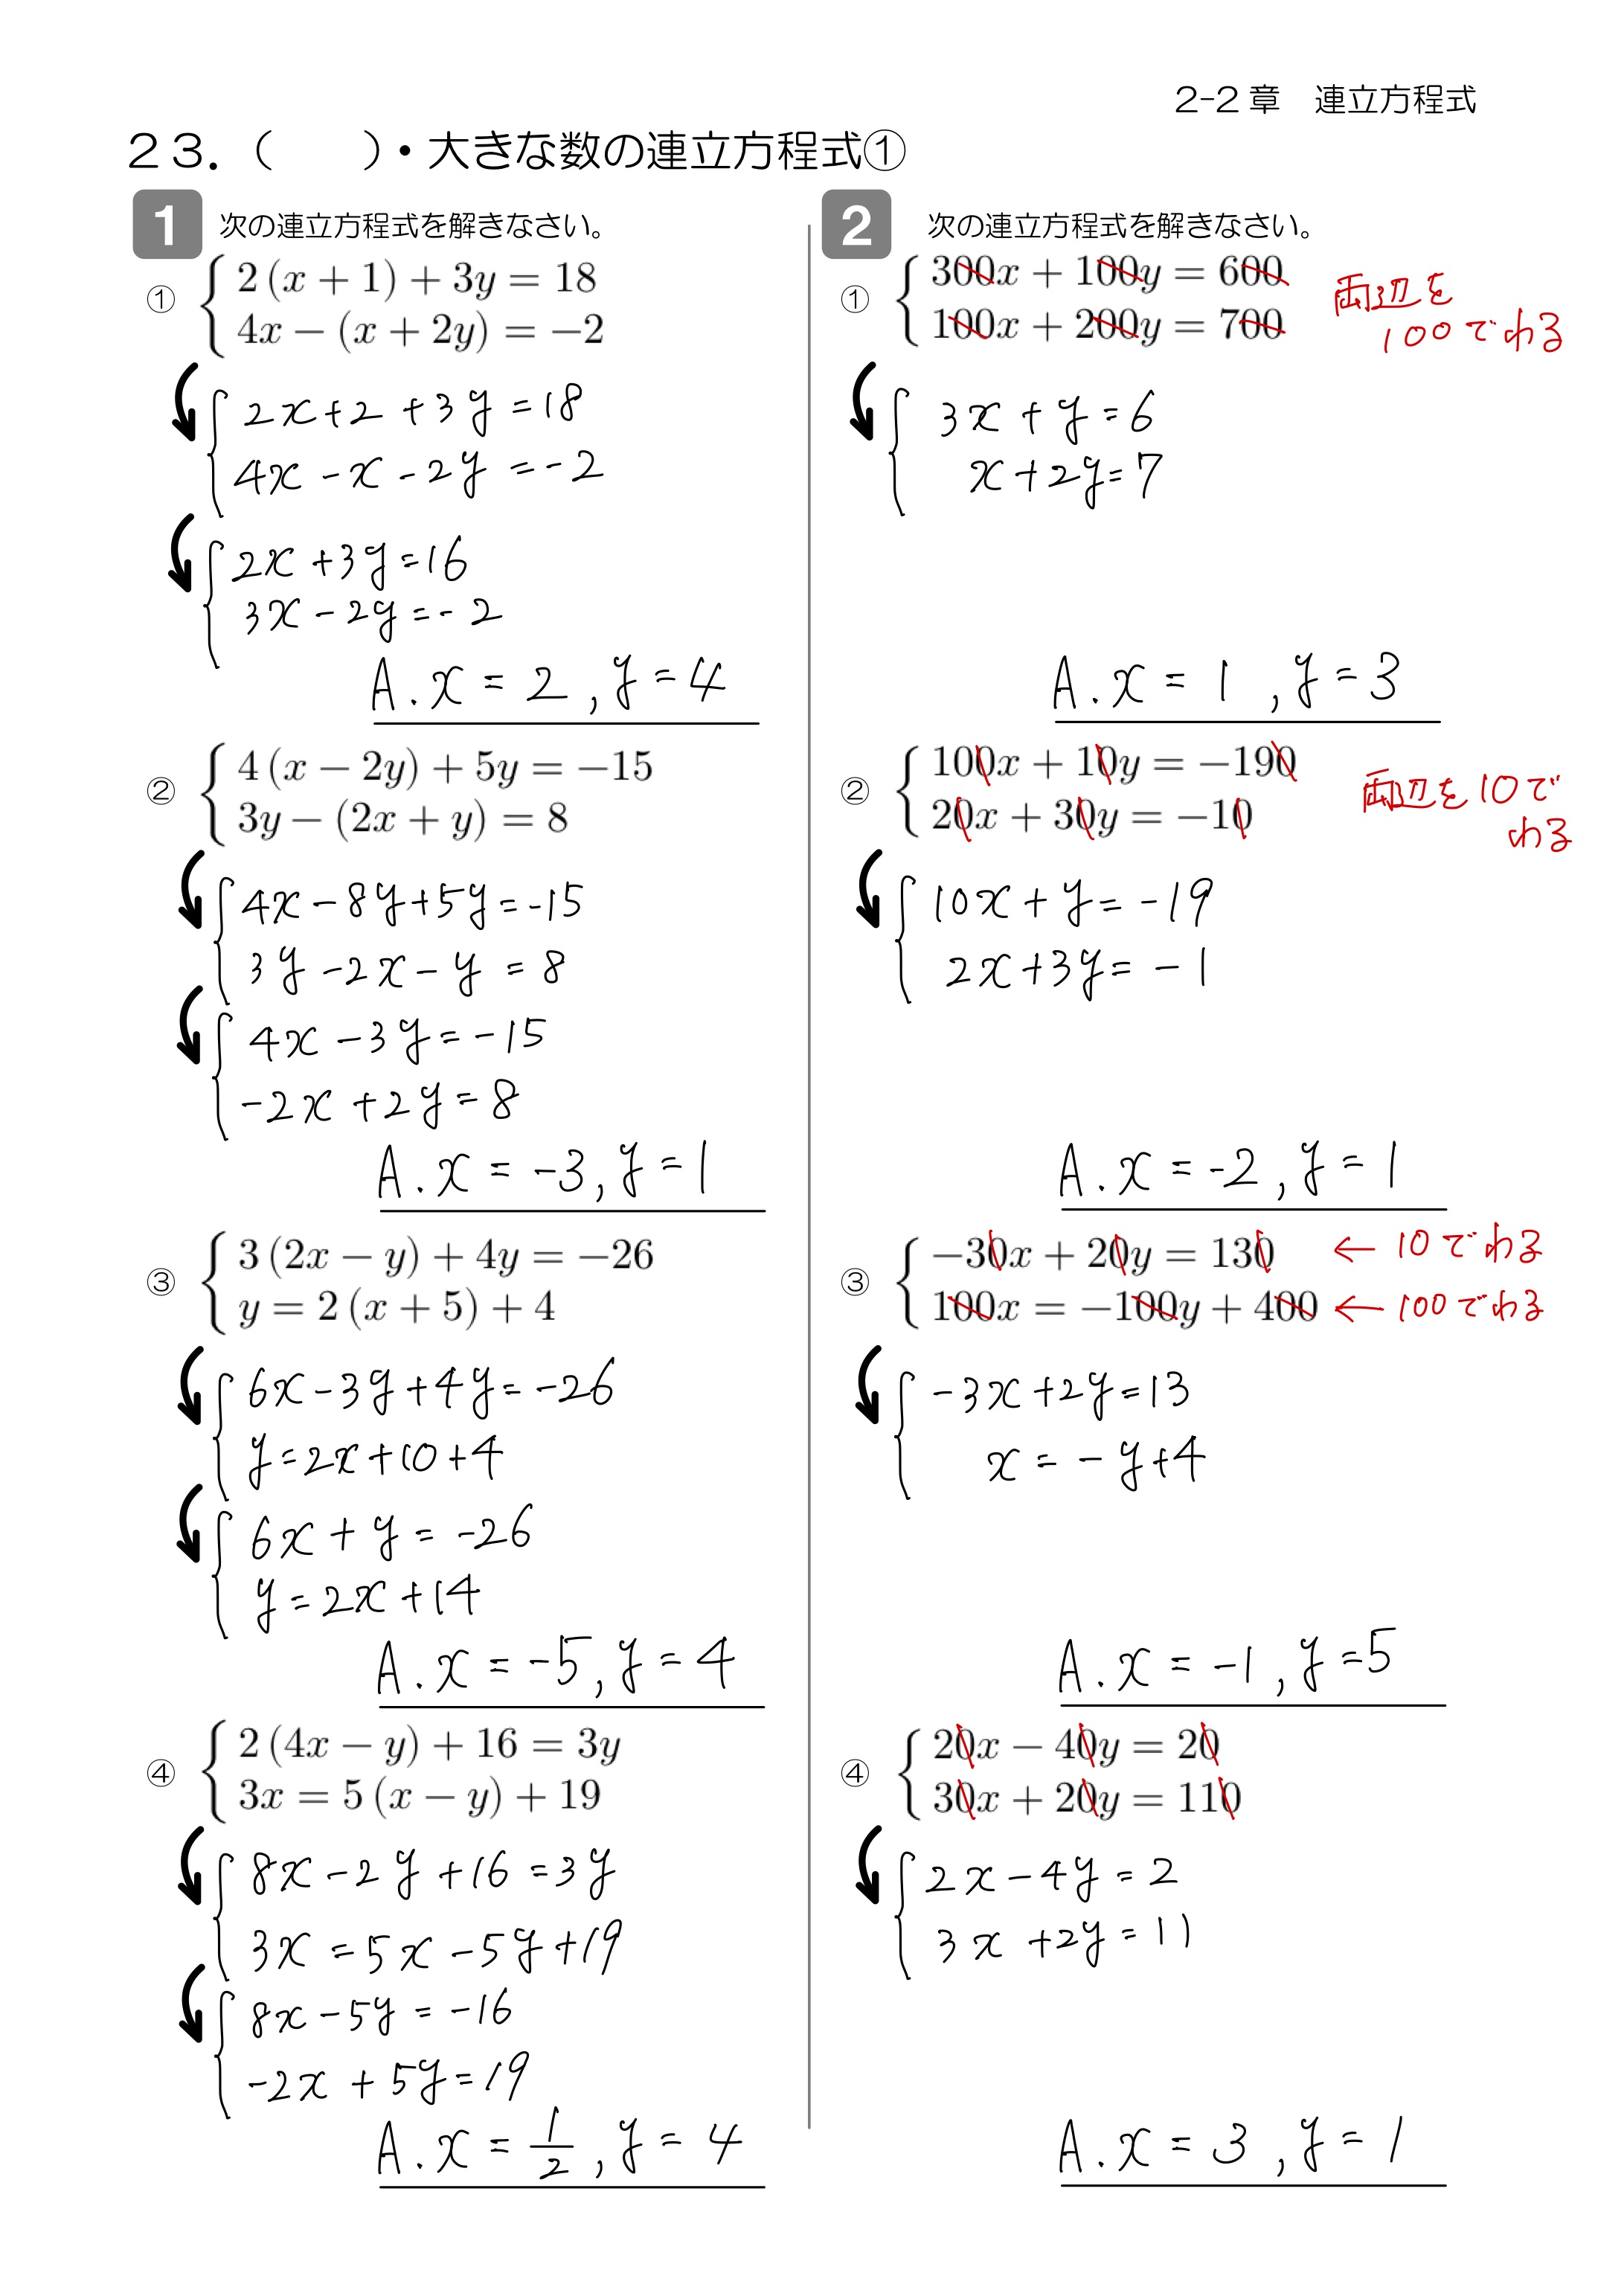 2-2章 連立方程式
23.( )・大きな数の連立方程式①
1 次の連立方程式を解きなさい。
① { 2(x + 1) + 3y = 18
4x − (x + 2y) = −2
{ 2x+2+3y=18
4x-x-2y=-2
{ 2x+3y=16
3x-2y=-2
A.x=2,y=4
② { 4(x − 2y) + 5y = −15
3y − (2x + y) = 8
{ 4x-8y+5y=-15
3y-2x-y=8
{ 4x-3y=-15
-2x+2y=8
A.x=-3,y=1
③ { 3(2x − y) + 4y = −26
y = 2(x + 5) + 4
{ 6x-3y+4y=-26
y=2x+10+4
{ 6x+y=-26
y=2x+14
A.x=-5,y=4
④ { 2(4x − y) + 16 = 3y
3x = 5(x − y) + 19
{ 8x-2y+16=3y
3x=5x-5y+19
{ 8x-5y=-16
-2x+5y=19
A.x=1/2,y=4
2 次の連立方程式を解きなさい。
① { 300x + 100y = 600
100x + 200y = 700
両辺を
100でわる
{ 3x+y=6
x+2y=7
A.x=1,y=3
② { 100x + 10y = −190
20x + 30y = −10
両辺を10で
わる
{ 10x+y=-19
2x+3y=-1
A.x=-2,y=1
③ { −30x + 20y = 130 ← 10でわる
100x = −100y + 400 ← 100でわる
{ -3x+2y=13
x=-y+4
A.x=-1,y=5
④ { 20x − 40y = 20
30x + 20y = 110
{ 2x-4y=2
3x+2y=11
A.x=3,y=1